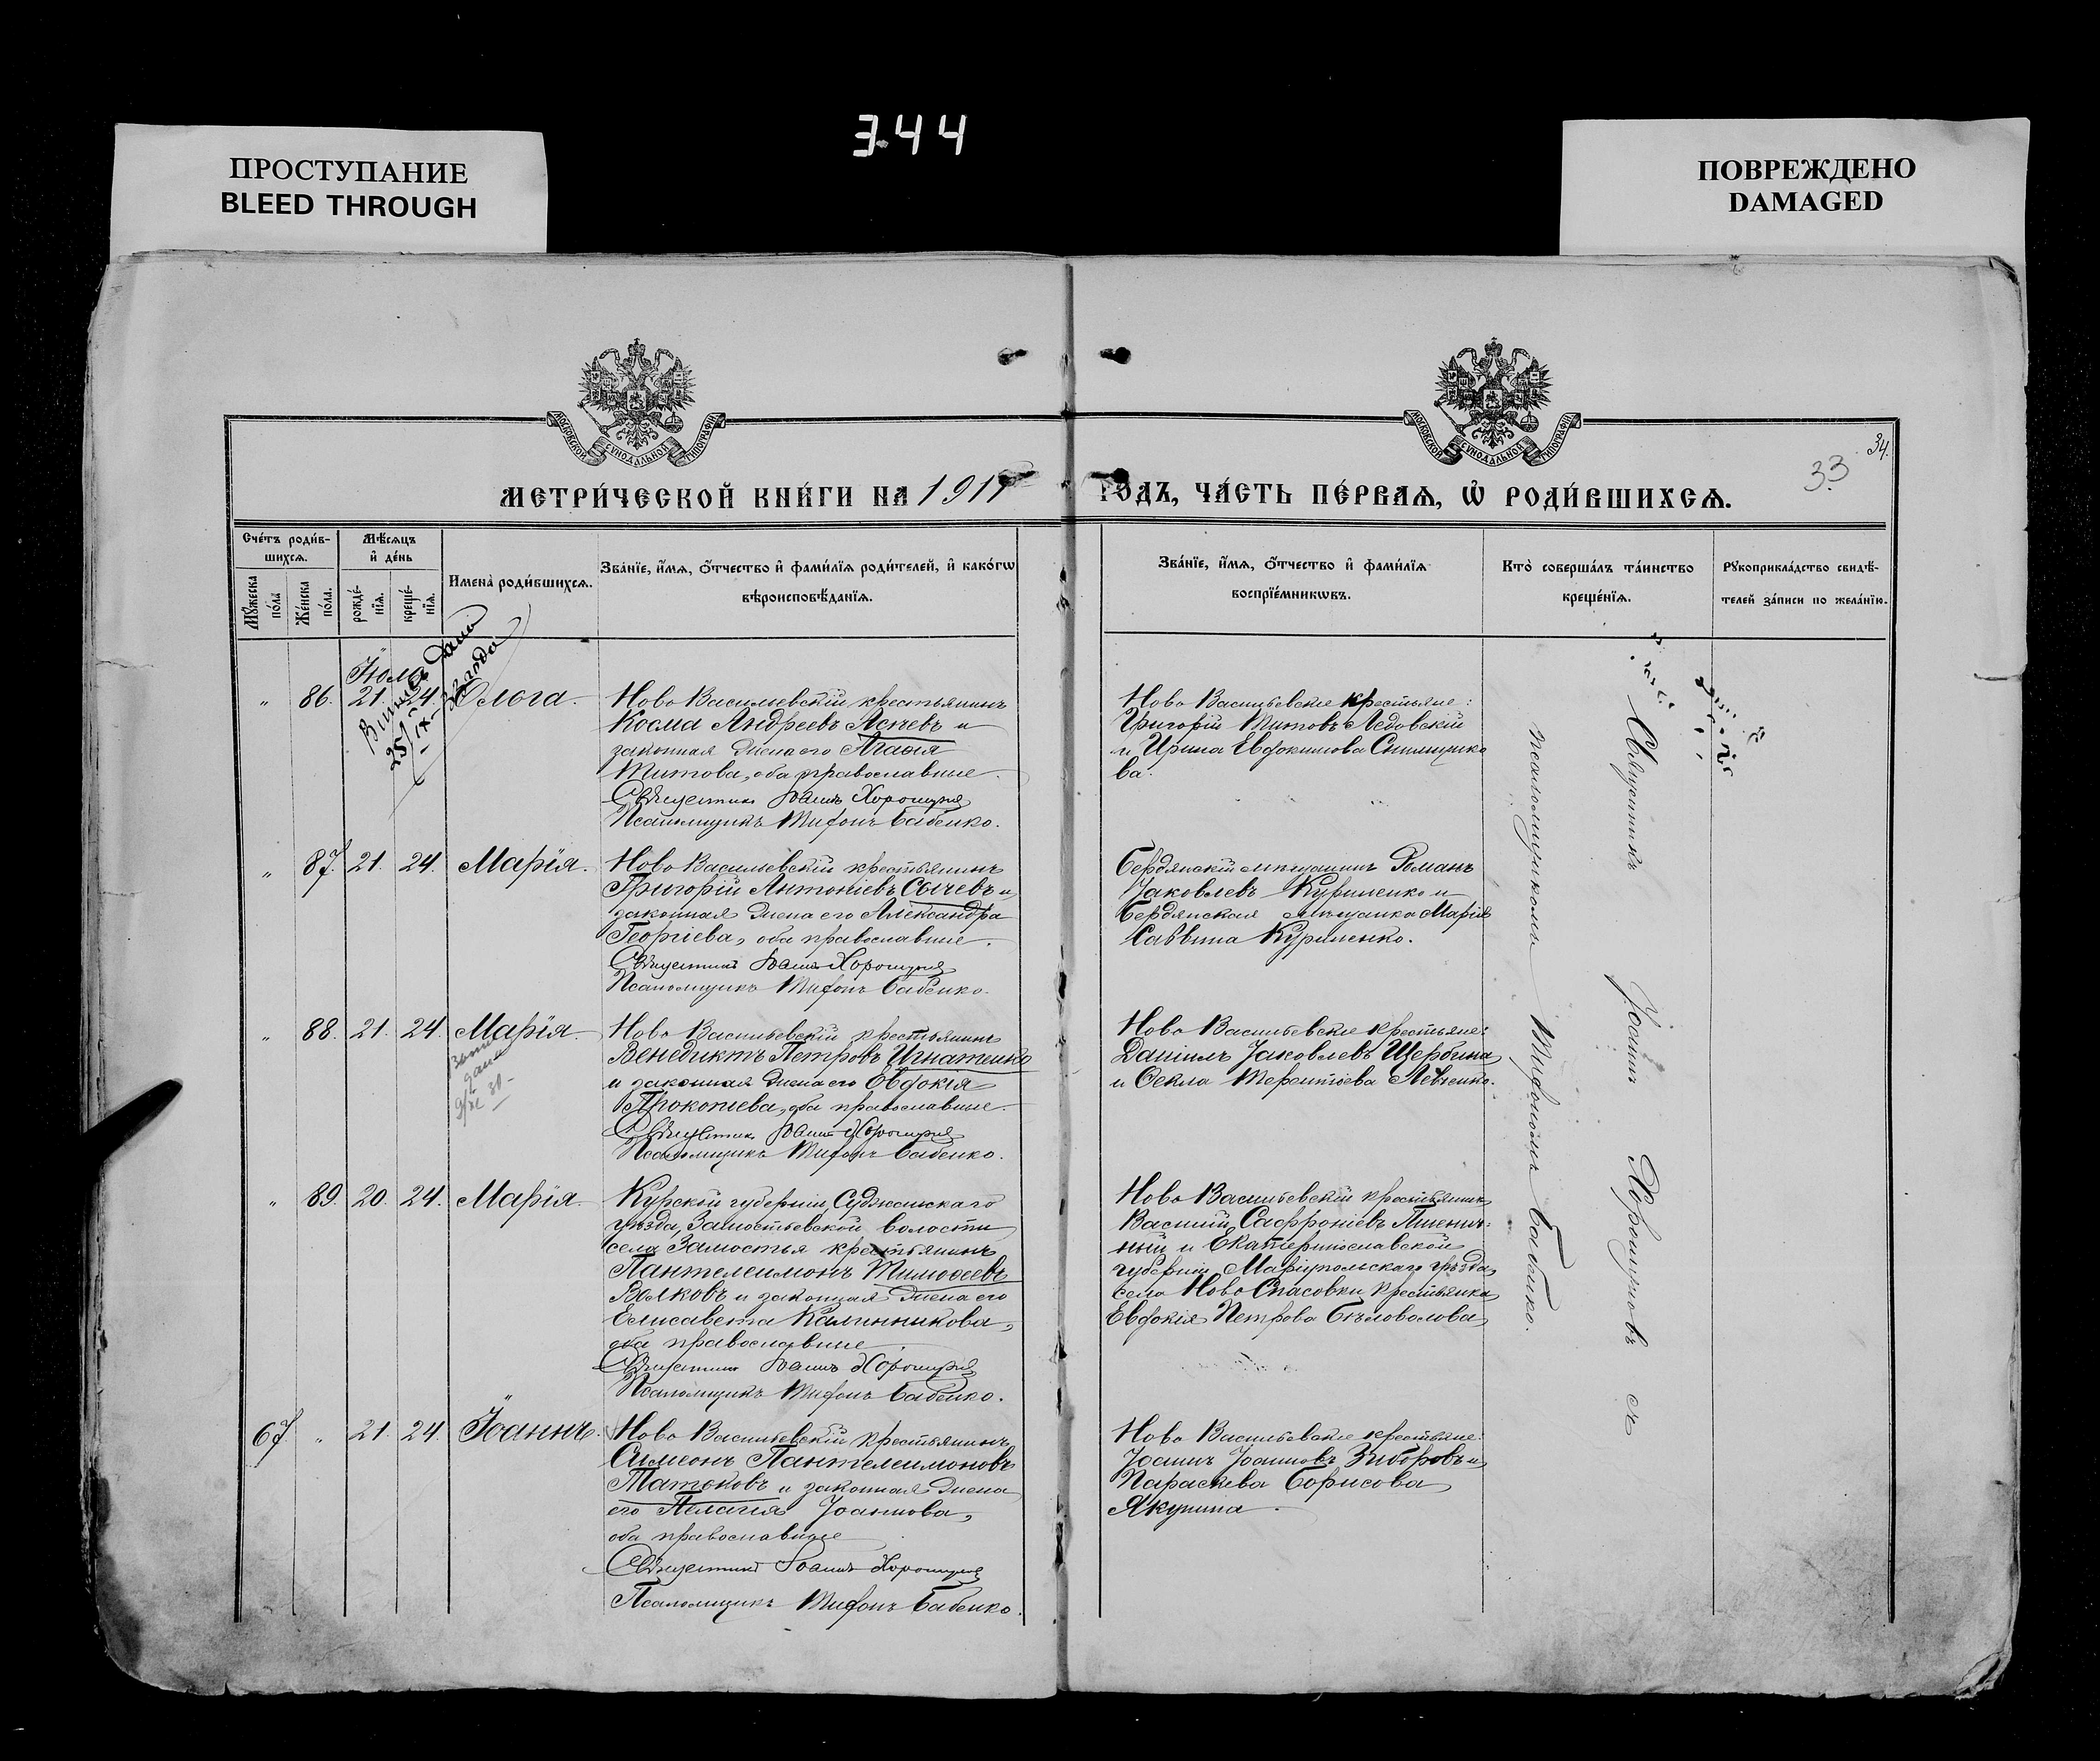 344
ПРОСТУПАНИЕ
BLEED THROUGH
ПОВРЕЖДЕНО
DAMAGED
МОСКОВСКОЙ СУНОДАЛЬНОЙ ТИПОГРАФІИ
МОСКОВСКОЙ СУНОДАЛЬНОЙ ТИПОГРАФІИ
34.
33
МЕТРИ́ЧЕСКОЙ КНИ́ГИ НА 1911
ГОДЪ, ЧА́СТЬ ПЕ́РВАѦ, Ѡ҆ РОДИ́ВШИХСѦ.
Сче́тъ роди́в-
шихсѧ.
Мꙋ́жеска по́ла
Же́нска по́ла.
Мѣ́сѧцъ
и҆ де́нь
рожде́-
нїѧ.
креще́-
нїѧ.
Имена̀ роди́вшихсѧ.
Зва́нїе, и҆́мѧ, ѻ҆́тчество и҆ фами́лїѧ роди́телей, и҆ како́гѡ
вѣроисповѣ́данїѧ.
Зва́нїе, и҆́мѧ, ѻ҆́тчество и҆ фами́лїѧ
воспрїе́мникѡвъ.
Кто̀ соверша́лъ та́инство
креще́нїѧ.
Рꙋкоприкла́дство свидѣ́-
телей за́писи по жела́нїю.
" 86. 21. 24. Ольга.
Ново Васильевскій крестьянинъ
Косма Андреевъ Асѣевъ и
законная жена его Агаѳія
Титова, оба православные.
Священникъ Іоаннъ Хорошунъ
Псаломщикъ Тифонъ Бабенко.
Ново Васильевские крестьяне:
Григорій Титовъ Ледовскій
и Ирина Евдокимова
ва.
" 87. 21. 24. Марія.
Ново Васильевскій крестьянинъ
Григорій Антоніевъ Сычевъ и
законная жена его Александра
Георгіева, оба православные.
Священникъ Іоаннъ Хорошунъ
Псаломщикъ Тифонъ Бабенко.
Бердянскій мѣщанинъ Романъ
Іаковлевъ Куриленко и
Бердянская мѣщанка Марія
Саввина Куриленко.
" 88. 21. 24. Марія.
Ново Васильевскій крестьянинъ
Венедиктъ Петровъ Игнатенко
и законная жена его Евдокія
Прокопіева, оба православные.
Священникъ Іоаннъ Хорошунъ
Псаломщикъ Тифонъ Бабенко.
Ново Васильевские крестьяне:
Даніилъ Іаковлевъ Щербина
и Ѳекла Терентіева Левченко.
" 89. 20. 24. Марія.
Курской губерніи, Суджанскаго
уѣзда, Замостьевской волости
села Замостья крестьянинъ
Пантелеимонъ Тимоѳеевъ
Волковъ и законная жена его
Елисавета Калинникова,
оба православные.
Священникъ Іоаннъ Хорошунъ
Псаломщикъ Тифонъ Бабенко.
Ново Васильевскій крестьянинъ
Василій Сафроніевъ Пшенич-
ный и Екатеринославской
губерніи Маріупольскаго уѣзда,
села Ново Спасовки крестьянка
Евдокія Петрова Бѣловолова
67 " 21. 24. Іоаннъ.
Ново Васильевскій крестьянинъ
Симеонъ Пантелеимоновъ
и законная жена
его Пелагія Іоаннова,
оба православные
Священникъ Іоаннъ Хорошунъ
Псаломщикъ Тифонъ Бабенко.
Ново Васильевские крестьяне:
Іоаннъ Іоанновъ Зиборовъ и
Параскева Борисова
Якунина.
Священникъ Іоаннъ Хорошуновъ съ
псаломщикомъ Тифономъ Бабенко.